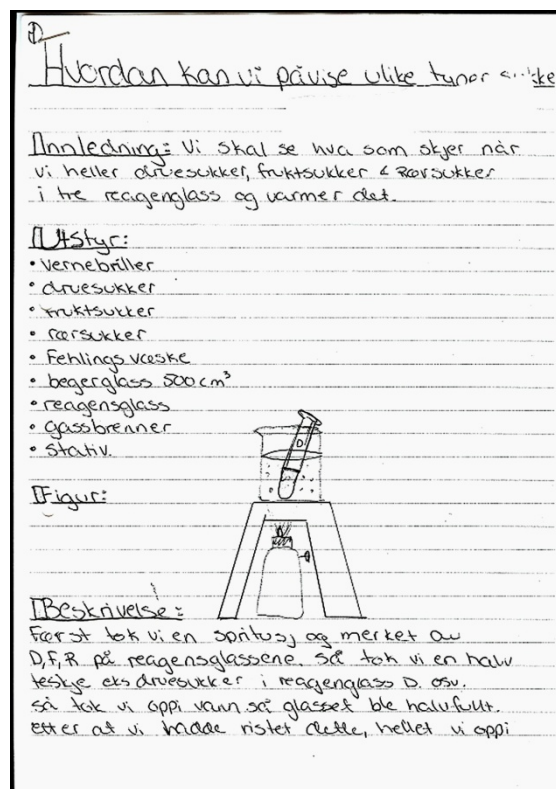 Hvordan kan vi påvise ulike typer
Innledning: Vi skal se hva som skjer når
vi heller druesukker, fruktsukker & rørsukker
i tre reagenglass og varmer det.
Utstyr:
• vernebriller
• druesukker
• fruktsukker
• rørsukker
• Fehlings væske
• begerglass 500 cm³
• reagensglass
• gassbrenner
• stativ.
D
Figur:
Beskrivelse:
Først tok vi en spritusj og merket av
D,F,R på reagensglassene. Så tok vi en halv
teskje eks druesukker i reagenglass D. osv.
så tok vi oppi vann så glasset ble halvfullt.
etter at vi hadde ristet dette, hellet vi oppi